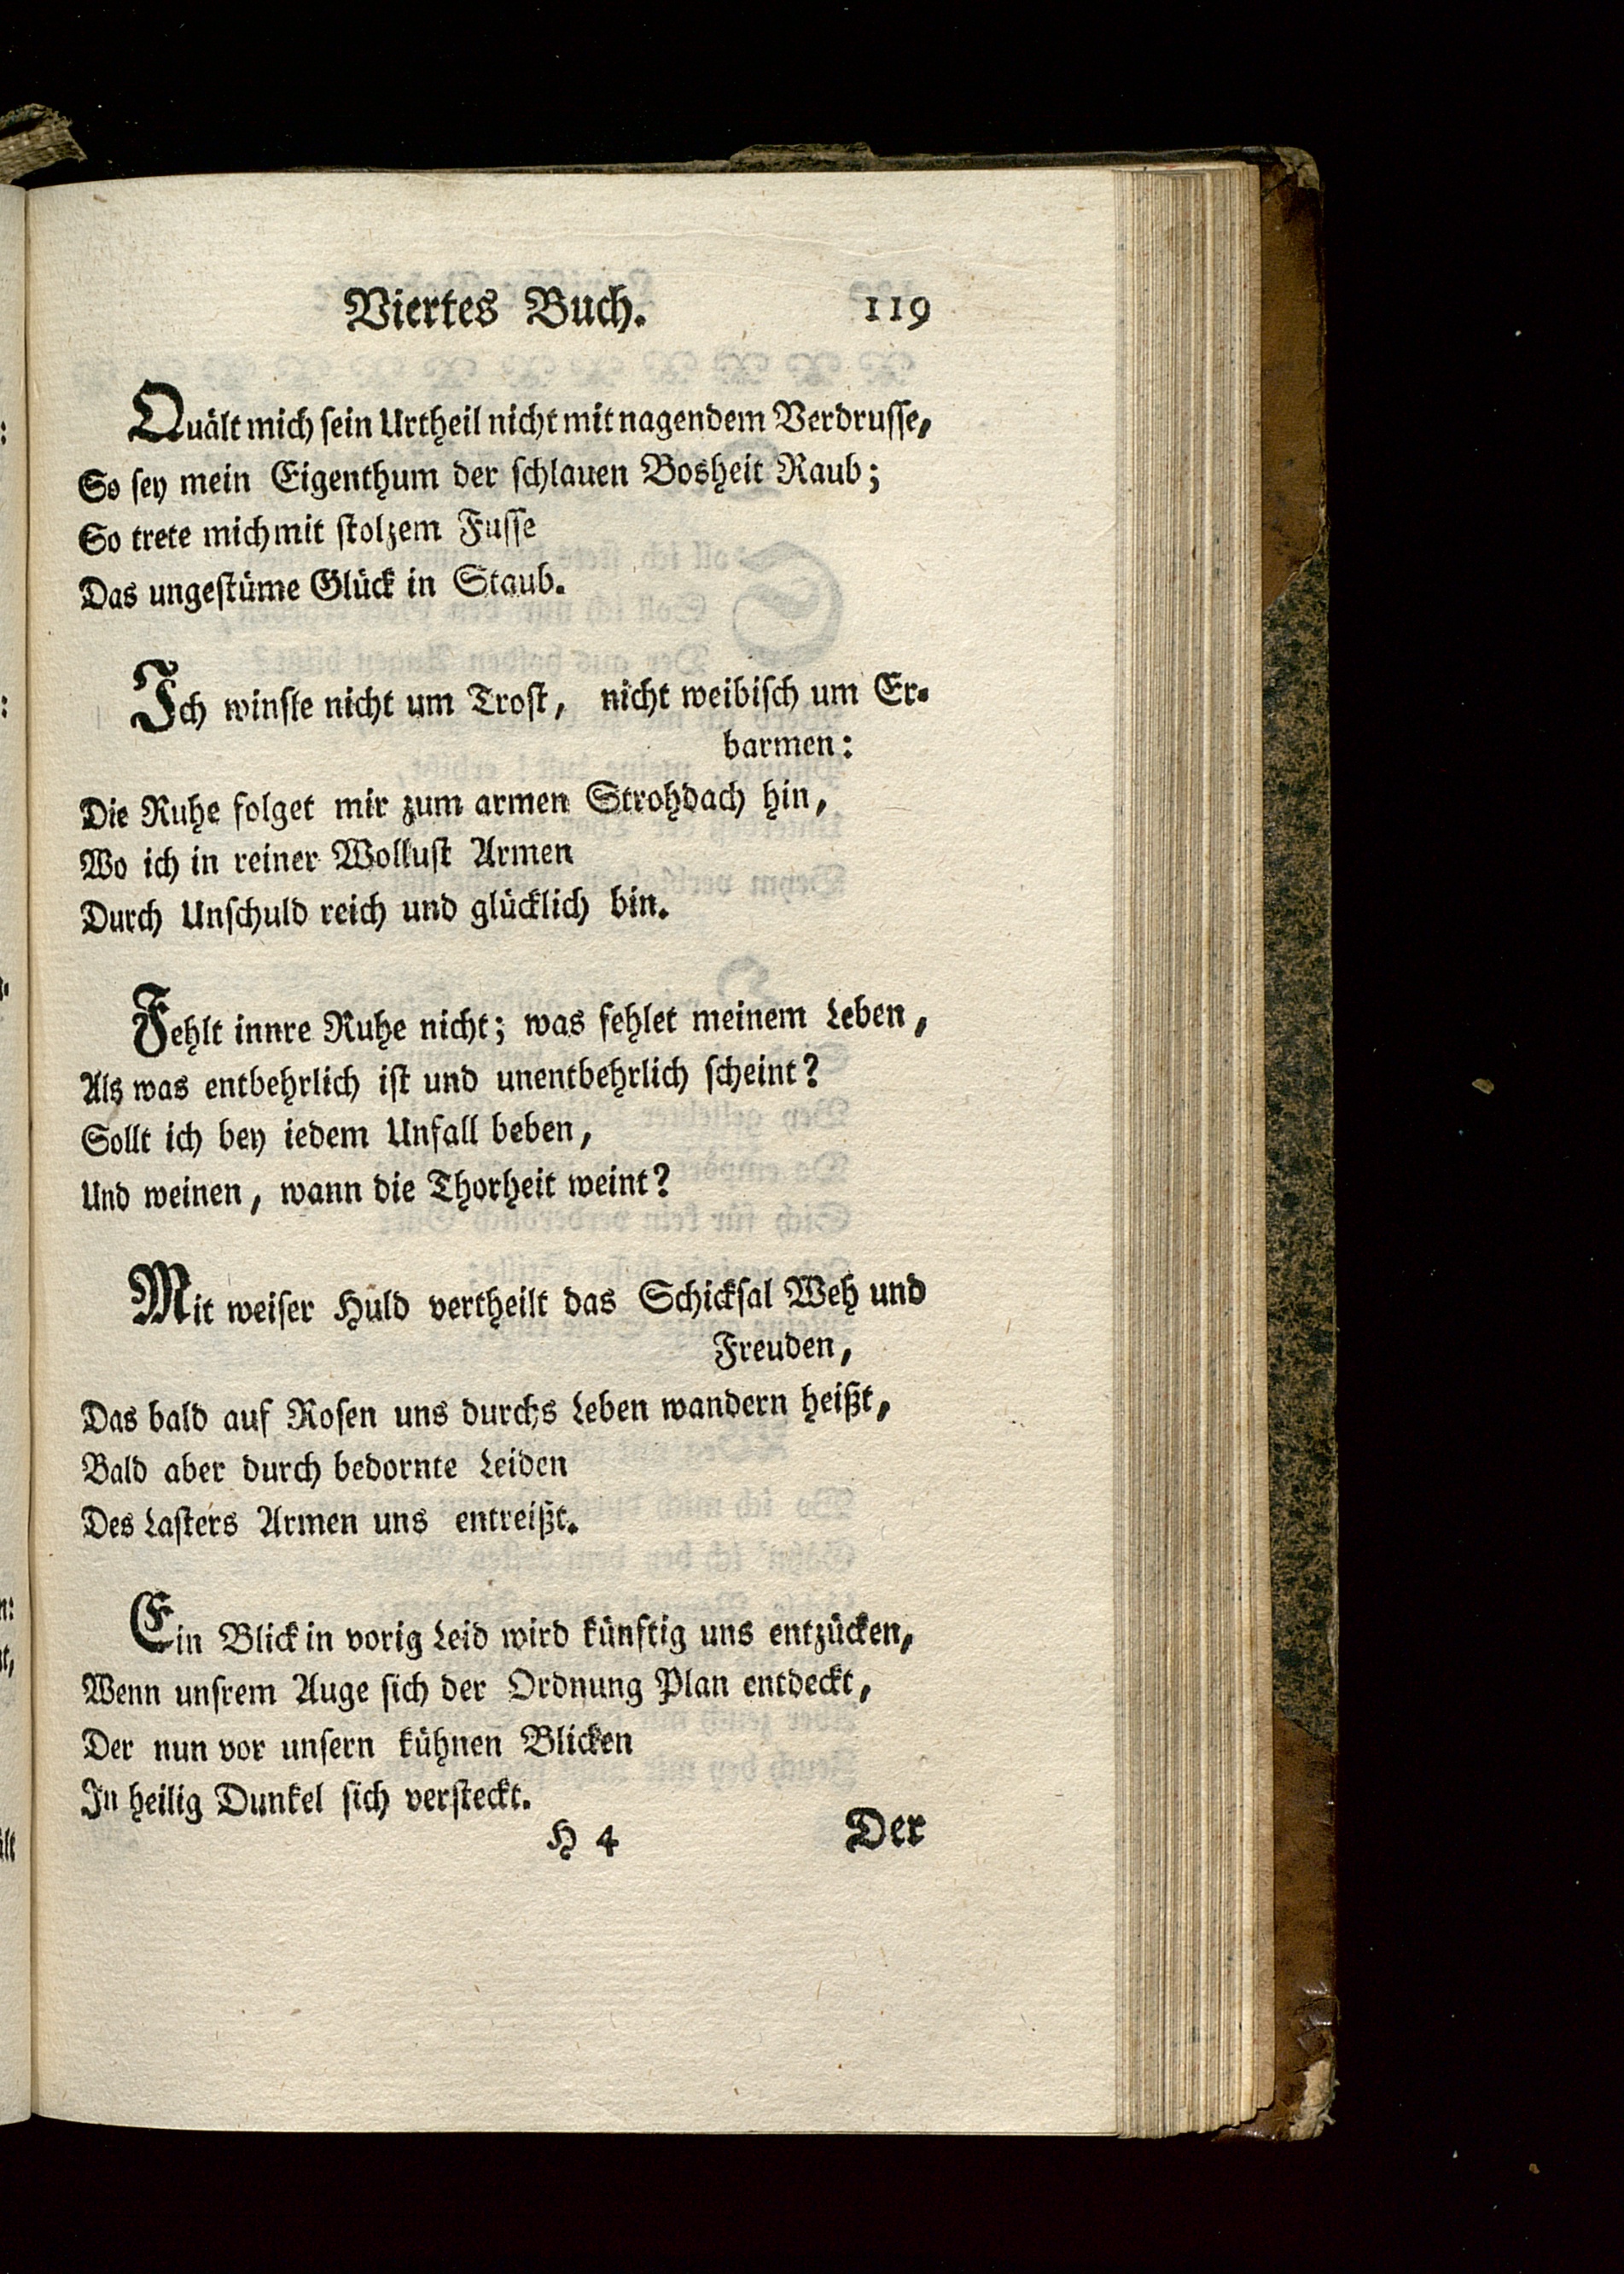 Viertes Buch. 119
Quält mich sein Urtheil nicht mit nagendem Verdrusse,
So sey mein Eigenthum der schlauen Bosheit Raub;
So trete mich mit stolzem Fusse
Das ungestüme Glück in Staub.
Ich winsle nicht um Trost, nicht weibisch um Er-
barmen:
Die Ruhe folget mir zum armen Strohdach hin,
Wo ich in reiner Wollust Armen
Durch Unschuld reich und glücklich bin.
Fehlt innre Ruhe nicht; was fehlet meinem Leben,
Als was entbehrlich ist und unentbehrlich scheint?
Sollt ich bey iedem Unfall beben,
Und weinen, wann die Thorheit weint?
Mit weiser Huld vertheilt das Schicksal Weh und
Freuden,
Das bald auf Rosen uns durchs Leben wandern heißt,
Bald aber durch bedornte Leiden
Des Lasters Armen uns entreißt.
Ein Blick in vorig Leid wird künftig uns entzücken,
Wenn unsrem Auge sich der Ordnung Plan entdeckt,
Der nun vor unsern kühnen Blicken
In heilig Dunkel sich versteckt.
H 4 Der